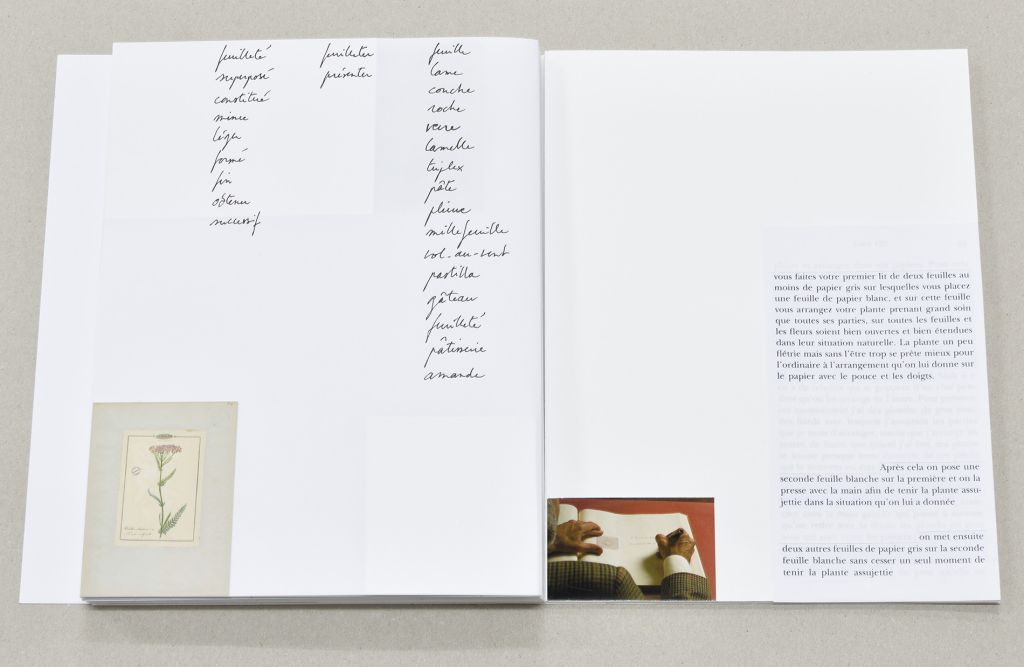 feuilleté
superposé
constitué
mince
léger
formé
fin
obtenu
successif
feuilleter
présenter
feuille
lame
couche
roche
verre
lamelle
triplex
pâte
pliure
millefeuille
vol-au-vent
pastilla
gâteau
feuilleté
pâtisserie
amande
vous faites votre premier lit de deux feuilles au
moins de papier gris sur lesquelles vous placez
une feuille de papier blanc, et sur cette feuille
vous arrangez votre plante prenant grand soin
que toutes ses parties, sur toutes les feuilles et
les fleurs soient bien ouvertes et bien étendues
dans leur situation naturelle. La plante un peu
flétrie mais sans l'être trop se prête mieux pour
l'ordinaire à l'arrangement qu'on lui donne sur
le papier avec le pouce et les doigts.
Après cela on pose une
seconde feuille blanche sur la première et on la
presse avec la main afin de tenir la plante assu-
jettie dans la situation qu'on lui a donnée
on met ensuite
deux autres feuilles de papier gris sur la seconde
feuille blanche sans cesser un seul moment de
tenir la plante assujettie